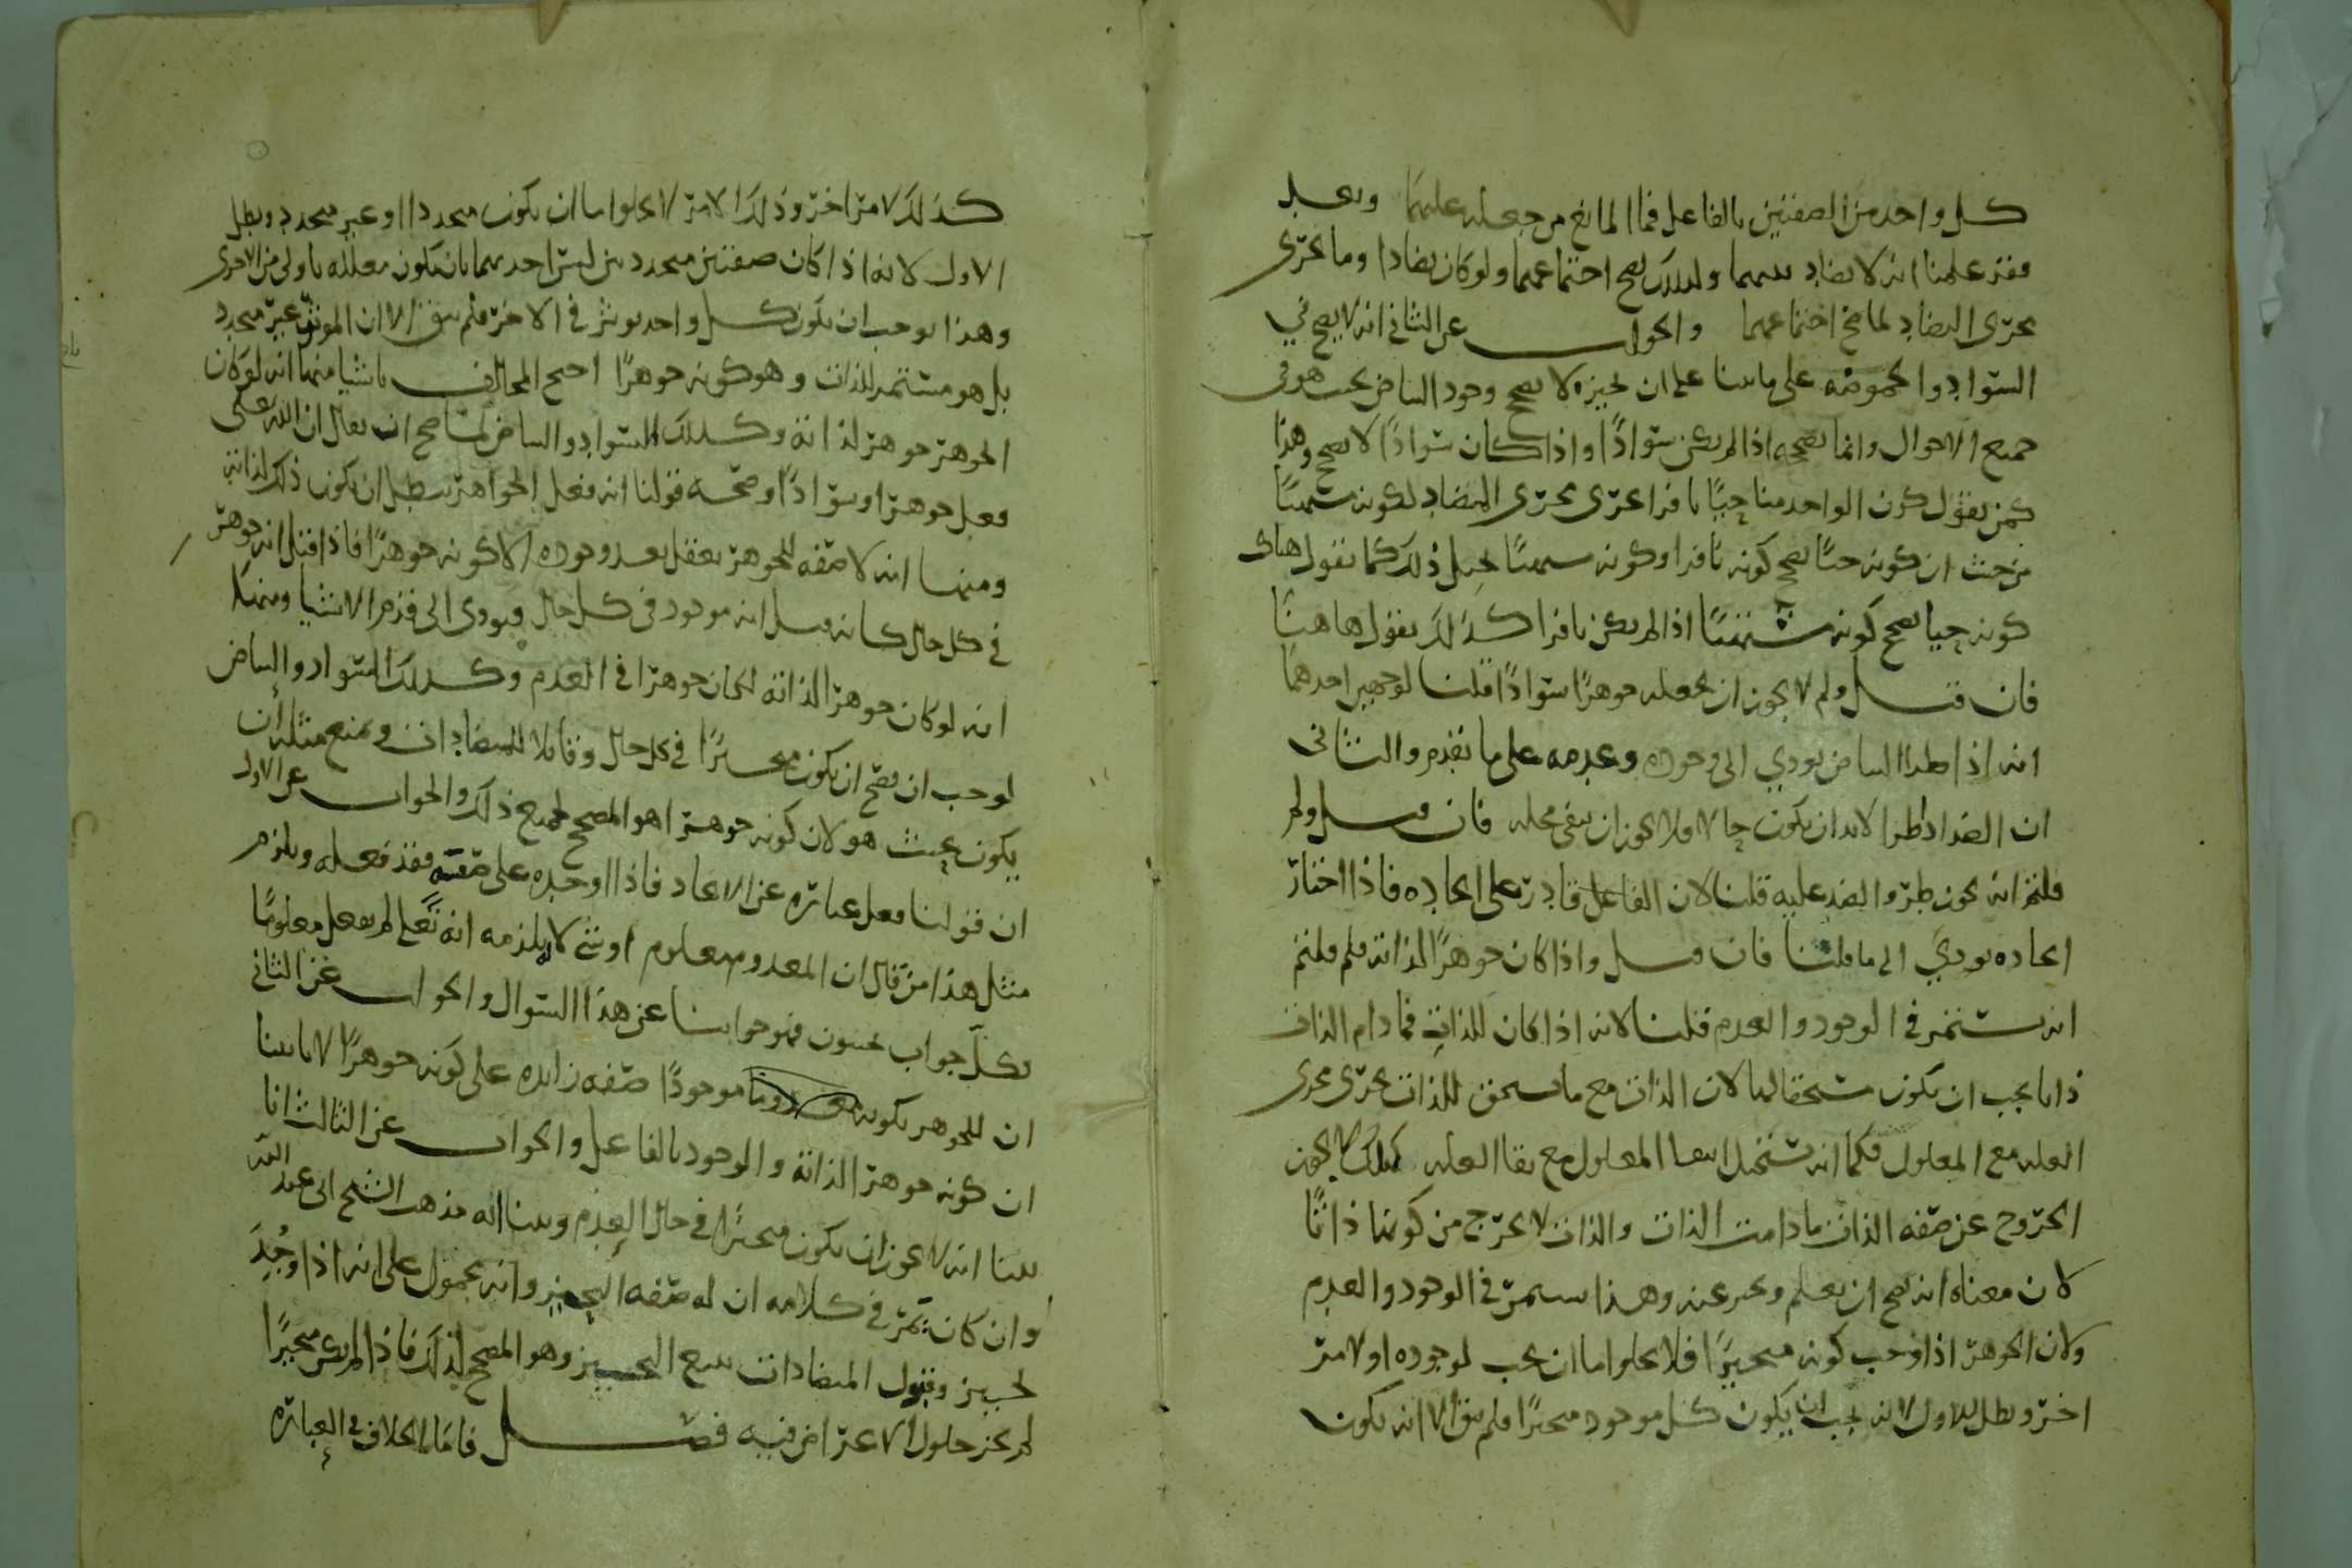 كل واحد من الصفتين بالفاعل فما المانع من جعله عليهما وبعد
فقد علمنا انه لا تضاد بينهما ولذلك يصح اجتماعهما ولو كان تضادا وما يجرى
مجرى التضاد لما صح اجتماعهما والجواب عن الثاني انه لا يصح في
السواد والحموضة على ما بينا على ان تحيزه لا يصحح وجود البياض بحيث هو في
جميع الاحوال وانما يصححه اذا لم يكن سوادا واذا كان سوادا لا يصح وهذا
كمن يقول كون الواحد منا حيا نافرا يجرى مجرى المضاد لكونه مشتهيا
من حيث ان كونه حيا يصحح كونه نافرا وكونه مشتهيا يحيل ذلك كما نقول هناك
كونه حيا يصحح كونه مشتهيا اذا لم يكن نافرا كذلك نقول هاهنا
فان قيل ولم لا يجوز ان يجعله جوهرا سوادا قلنا لوجهين احدهما
انه اذا طرا البياض يودي الى وجوده وعدمه على ما تقدم والثاني
ان الضد اذا طرا لا بد ان يكون حالا فلا يجوز ان ينفي محله فان قيل ولم
قلتم انه يجوز طرو الضد عليه قلنا لان الفاعل قادر على ايجاده فاذا اختار
ايجاده يودي الى ما قلنا فان قيل واذا كان جوهرا لذاته فلم قلتم
انه يستمر في الوجود والعدم قلنا لانه اذا كان للذات فما دام الذات
ذاتا يجب ان يكون مستحقا لها لان الذات مع ما يستحق للذات يجرى مجرى
العله مع المعلول فكما انه يستحيل انتفا المعلول مع بقا العله كذلك لا يجوز
الخروج عن صفه الذات ما دامت الذات والذات لا يخرج من كونها ذاتا
لان معناه انه يصح ان يعلم ويخبر عنه وهذا يستمر في الوجود والعدم
ولان الجوهر اذا وجب كونه متحيزا فلا يخلوا اما ان يجب لوجوده او لامر
اخر وبطل الاول لانه يجب ان يكون كل موجود متحيزا فلم يبق الا انه يكون
كذلك لامر اخر وذلك الامر لا يخلوا اما ان يكون متجددا او غير متجدد وبطل
الاول لانه اذا كان صفتين متجددتين ليس احديهما بان يكون معلله باولى من الاخرى
وهذا يوجب ان يكون كل واحد يوثر في الاخر فلم يبق الا ان الموثر غير متجدد
بل هو مستمر للذات وهو كونه جوهرا احتج المخالف باشيا منها انه لو كان
الجوهر جوهرا لذاته وكذلك السواد والبياض لما صح ان يقال ان الله تعالى
فعل جوهرا وسوادا وصحه قولنا انه فعل الجواهر يبطل ان يكون ذلك لذاته
ومنها انه لا صفه للجوهر يعقل بعد وجوده الا كونه جوهرا فاذا قيل انه جوهر
في كل حال كانه قيل انه موجود في كل حال ويودى الى قدم الاشيا ومنها
انه لو كان جوهرا لذاته لكان جوهرا في العدم وكذلك السواد والبياض
لوجب ان يصح ان يكون متحيزا في كل حال وقابلا للمتضادات ويمنع مثله ان
يكون بحيث هو لان كونه جوهرا هو المصحح لجميع ذلك والجواب عن الاول
ان قولنا فعل عبارة عن الايجاد فاذا اوجده على صفته فقد فعله ويلزم
مثل هذا من قال ان المعدوم معلوم او شي لانه يلزمه انه تعالى لم يفعل معلوما
وكل جواب يجيبون فهو جوابنا عن هذا السوال والجواب عن الثاني
ان للجوهر بكونه موجودا صفه زايده على كونه جوهرا لانا بينا
ان كونه جوهرا لذاته والوجود بالفاعل والجواب عن الثالث انا
بينا انه لا يجوز ان يكون متحيزا في حال العدم وبينا انه مذهب الشيخ ابى عبد الله
وان كان يمر في كلامه ان له صفه التحيز وانه محمول على انه اذا وجد
تحيز وقبول المتضادات يتبع التحيز وهو المصحح لذلك فاذا لم يكن متحيزا
لم يجز حلول الاعراض فيه فصل فاما الخلاف في العبارة